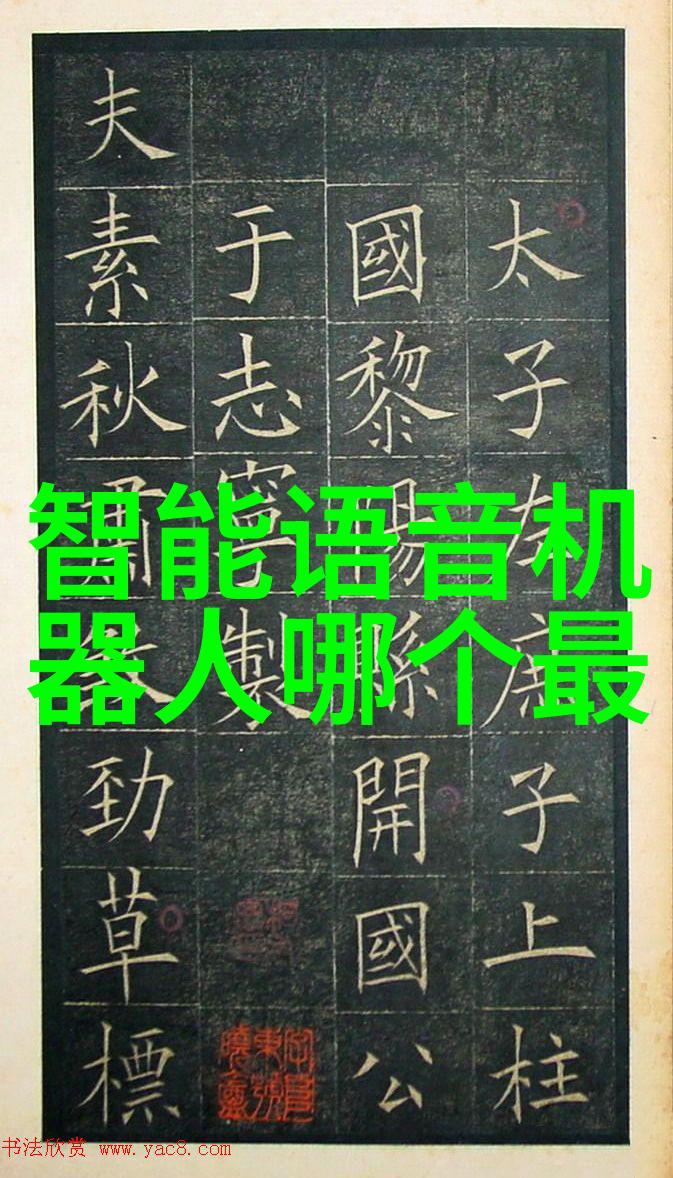 太子左庶子上柱
國黎陽縣開國公
于志寧製
夫素秋肅勁草標
智能语音机
器人哪个最
书法欣赏 www.yac8.com